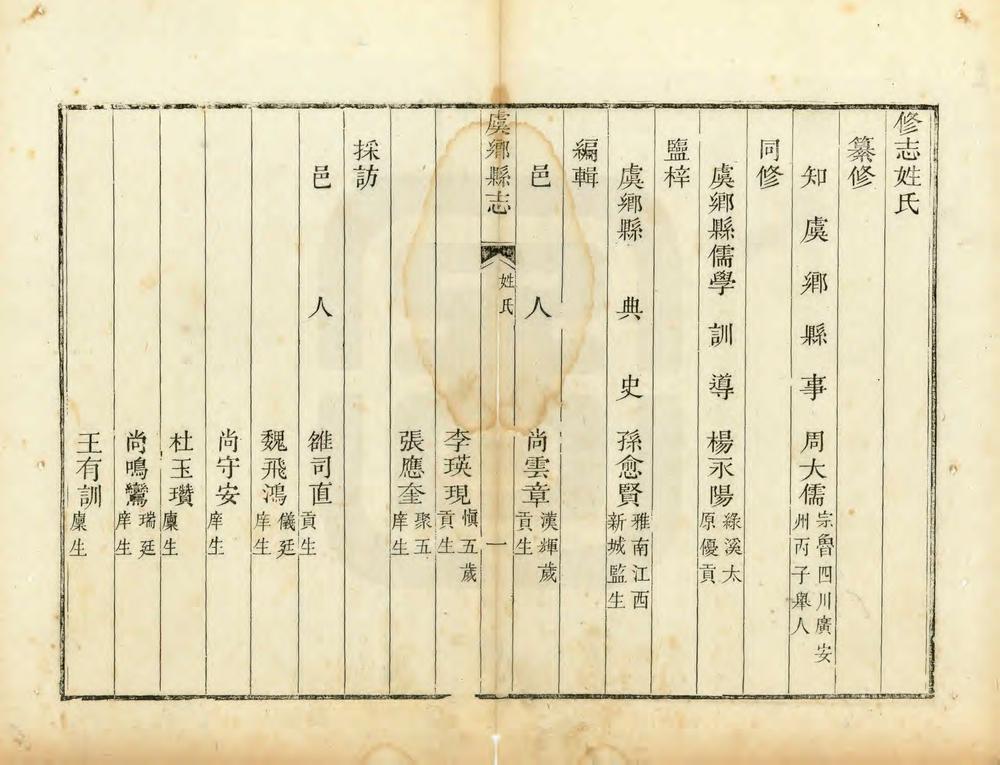 修志姓氏
纂修
知虞鄉縣事 周大儒 宗魯四川廣安州丙子舉人
同修
虞鄉縣儒學訓導 楊永陽 綠溪太原優貢
鹽梓
虞鄉縣典史 孫愈賢 雅南江西新城監生
編輯
邑人 尚雲章 漢輝歲貢生
虞鄉縣志 姓氏 一
李瑛現 愼五歲貢生
張應奎 聚五庠生
採訪
邑人 雒司直 貢生
魏飛鴻 儀廷庠生
尚守安 庠生
杜玉瓚 廩生
尚鳴鸞 瑞廷庠生
王有訓 廩生